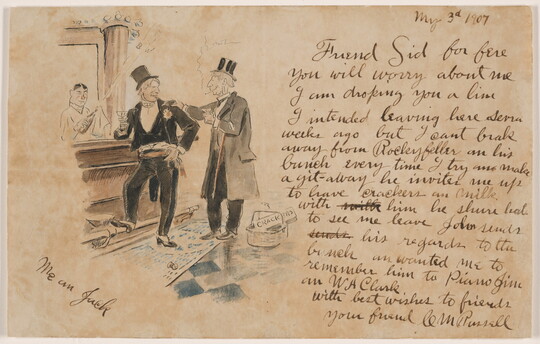 May 3d 1907
Friend Sid for fere
you will worry about me
I am droping you a line
I intended leaving here
weeke ago but I cant brak
away from Rockeyfeller an his
bunch every time I try an make
a git-away he invites me up
to have crackers an milk
with him he shure had
to see me leave John sends
his regards to the
bunch an wanted me to
remember him to Piano Jim
an W A Clark
with best wishes to friends
your friend C M Russell
CRACKERS
Me an Jack